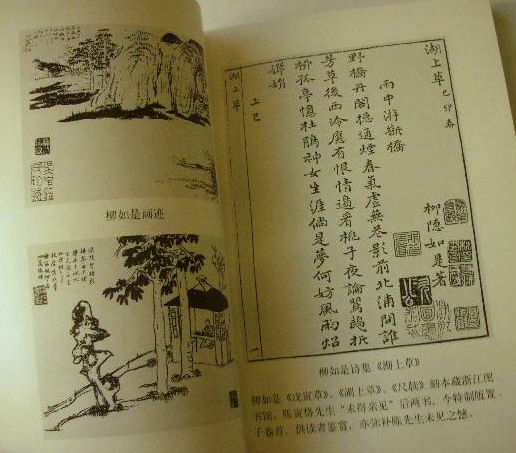 柳如是画迹
湖上草 己卯春
柳隐如是著
雨中游斷橋
野橋丹閣揔通煙春氣虛無花影前北浦問誰
芳草後西泠應有恨情邊看桃子夜論鸚鵡折
柳孤亭憶杜鵑神女生涯倘是夢何妨風雨炤
嬋娟
上巳
湖上草
一
柳如是诗集《湖上草》
柳如是《戊寅草》、《湖上草》、《尺牍》刻本藏浙江图
书馆，陈寅恪先生“未得亲见”后两书，今特制版置
于卷首，供读者鉴赏，亦弥补陈先生未见之憾。